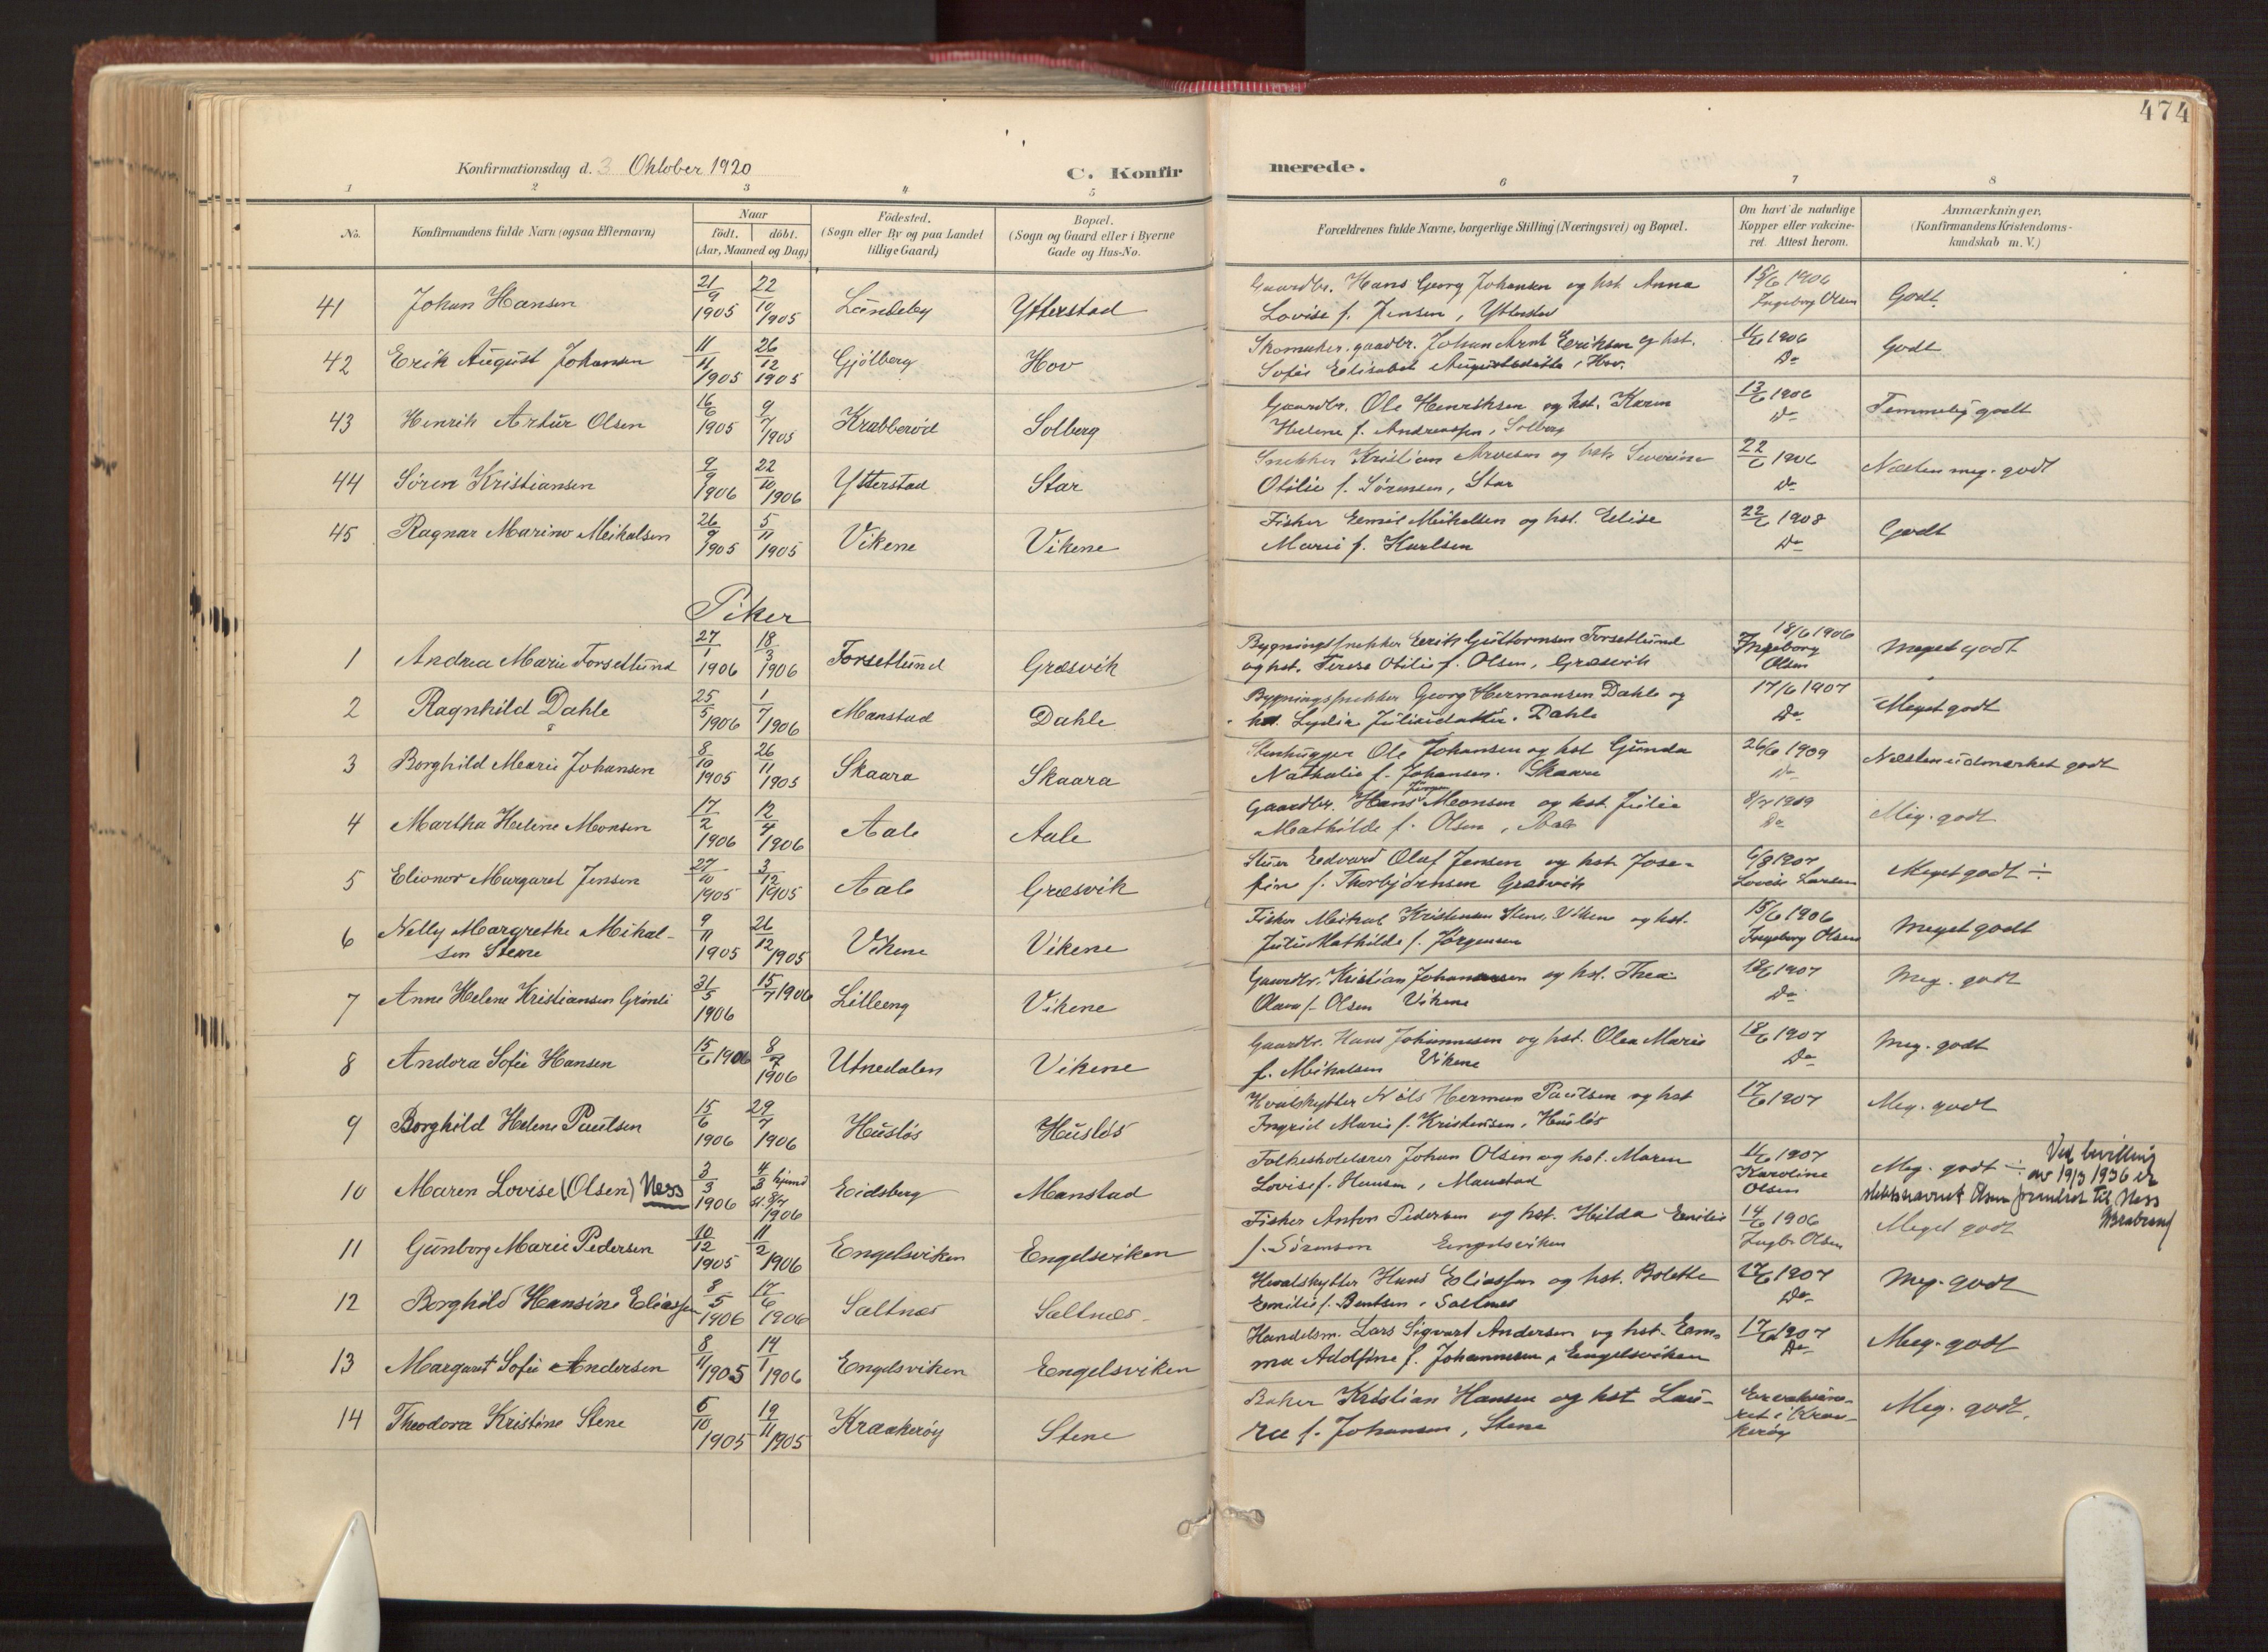 474
Konfirmationsdag d. 3 Oktober 1920
C. Konfirmerede.
1 2 3 4 5 6 7 8
No. Konfirmandens fulde Navn (ogsaa Efternavn) Naar födt. döbt. (Aar, Maaned og Dag) Födested. (Sogn eller By og paa Landet tillige Gaard) Bopæl. (Sogn og Gaard eller i Byerne Gade og Hus-No. Forældrenes fulde Navne, borgerlige Stilling (Næringsvei) og Bopæl. Om havt de naturlige Kopper eller vakcineret. Attest herom. Anmærkninger. (Konfirmandens Kristendomskundskab m. V.)
41 Johan Hansen 21/9 1905 22/10 1905 Lundeby Ytterstad Gaardbr. Hans Georg Johansen og hst. Anna 15/6 1906 Godt
Lovise f. Jensen, Ytterstad Ingeborg Olsen
42 Erik August Johansen 11/11 1905 26/12 1905 Gjölberg Hov Skomaker, gaardbr. Johan Arnt Eriksen og hst. 11/6 1906 Godt
Sofie Elisabet Augustsdatter, Hov. Do
43 Henrik Artur Olsen 16/6 1905 9/7 1905 Krabberöd Solberg Gaardbr. Ole Henriksen og hst. Karen 13/6 1906 Temmelig godt
Helene f. Andreassen, Solberg Do
44 Sören Kristiansen 9/9 1906 22/10 1906 Ytterstad Star Snekker Kristian Arvesen og hst. Severine 22/6 1906 Næsten meg. godt
Otilie f. Sörensen, Star Do
45 Ragnar Marino Mikalsen 26/9 1905 5/11 1905 Vikene Vikene Fisker Emil Mikalsen og hst. Elise 22/6 1908 Godt
Marie f. Karlsen Do
Piker
1 Andrea Marie Forsetlund 27/1 1906 18/3 1906 Forsetlund Græsvik Bygningssnekker Erik Guttormsen Forsetlund 18/6 1906 Meget godt
og hst. Terese Otilie f. Olsen, Græsvik Ingeborg Olsen
2 Ragnhild Dahle 25/5 1906 1/7 1906 Manstad Dahle Bygningssnekker Georg Hermansen Dahle og 17/6 1907 Meget godt
hst. Lydia Juliusdatter. Dahle Do
3 Borghild Marie Johansen 8/10 1905 26/11 1905 Skaara Skaara Stenhugger Ole Johansen og hst Gunda 26/6 1909 Næsten udmærket godt
Nathalie f. Johansen. Skaare Do
4 Martha Helene Monsen 17/2 1906 12/4 1906 Aale Aale Gaardbr. Hans Monsen og hst. Julie 8/7 1909 Meg. godt
Mathilde f. Olsen, Aale Do
5 Elionor Margaret Jensen 27/10 1905 3/12 1905 Aale Græsvik Stuer Edvard Olaf Jensen og hst. Jose- 6/8 1907 Meget godt ÷
fine f. Thorbjörnsen Græsvik Lovise Larsen
6 Nelly Margrethe Mikal- 9/11 1905 26/12 1905 Vikene Vikene Fisker Mikal Kristensen Stene, Vikene og hst. 15/6 1906 Meget godt
sen Stene Julie Mathilde f. Jörgensen Ingeborg Olsen
7 Anne Helene Kristiansen Grönli 31/5 1906 15/7 1906 Lilleeng Vikene Gaardbr. Kristian Johannesen og hst. Thea 18/6 1907 Meg. godt
Olava f. Olsen Vikene Do
8 Andora Sofie Hansen 15/6 1906 8/7 1906 Utnedalen Vikene Gaardbr. Hans Johannesen og hst. Olea Marie 18/6 1907 Meg. godt
f. Mikalsen Vikene Do
9 Borghild Helene Paulsen 15/6 1906 29/7 1906 Huslös Huslös Hvalskytter Nils Herman Paulsen og hst 17/6 1907 Meg. godt
Ingrid Marie f. Kristensen, Huslös
10 Maren Lovise (Olsen) Ness 3/3 1906 4/3 hjemd st. 8/7 1906 Eidsberg Manstad Folkeskolelærer Johan Olsen og hst. Maren 11/6 1907 Meg. godt ÷ Ved bevilling av 19/3 1936 er
Lovise f. Hansen, Manstad Karoline Olsen slektsnavnet Olsen forandret til Ness
11 Gunborg Marie Pedersen 10/12 1905 11/2 1906 Engelsviken Engelsviken Fisker Anton Pedersen og hst. Hilda Emilie 14/6 1906 Meget godt
f. Sörensen Engelsviken Ingbr. Olsen
12 Borghild Hansine Eliassen 8/5 1906 17/6 1906 Saltnæs Saltnæs Hvalskytter Hans Eliassen og hst. Bolette 17/6 1907 Meg. godt
Emilie f. Bentsen, Saltnes Do
13 Margaret Sofie Andersen 8/11 1905 14/1 1906 Engelsviken Engelsviken Handelsm. Lars Sigvart Andersen og hst. Em- 17/6 1907 Meg. godt
ma Adolfine f. Johannesen, Engelsviken Do
14 Theodora Kristine Stene 6/10 1905 19/11 1905 Kraakeröy Stene Baker Kristian Hansen og hst Lau- Er vakcine- Meg. godt.
ra f. Johansen, Stene ret i Kraakeröy